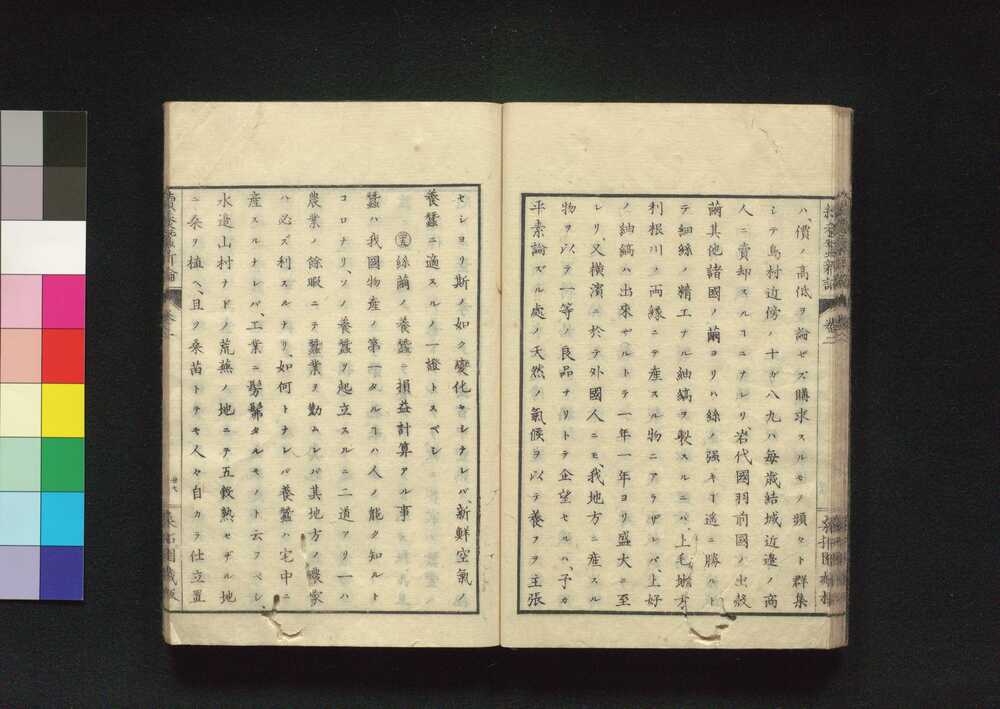 ハ、價ノ高低ヲ論ゼズ購求スルモノ頭セト群集
シテ島村近傍ノ十ガ八九ハ毎歳結城近邊ノ商
人ニ賣却スルヿニナレリ、岩代國羽前國ノ出殻
繭其他諸國ノ繭ヨリハ絲ノ强キヿ遙ニ勝ハト
テ細絲ノ精工ナル紬縞ヲ製スルニハ、上毛地方
利根川ノ両縁ニテ産スル物ニアラザレバ、上好
ノ紬縞ハ出來ヤルトテ一年一年ヨリ盛大ニ至
レリ、又横濱ニ於テ外國人ニモ、我地方ニ産スル
物ヲ以テ一等ノ良品ナリトテ企望セルハ、予カ
平素論ズル處ノ天然ノ氣候ヲ以テ養フヲ主張
セシヨリ斯ノ如ク變化セシナレバ、新鮮空氣ノ
養蠶ニ適スルノ一證トスベシ
絲繭ノ養蠶テ損益計算アル事
蠶ハ我國物産ノ第一タルヿハ人ノ能ク知ルト
コロナリ、ソノ養蠶ヲ起立スルニ二道アリ一ハ
農業ノ餘暇ニテ蠶業ヲ勤ムレバ其地方ノ農家
ハ必ズ利スルナリ、如何トナレバ養蠶ハ宅中ニ
産スルナレバ、工業ニ髣髴タルモノト云フベシ
水邉山村ナドノ荒蕪ノ地ニテ五穀熟セザル地
ニ桒ヲ植ヘ、且ツ桒苗トテモ人々自カラ仕立置
續養蠶新論
卷二
廿七